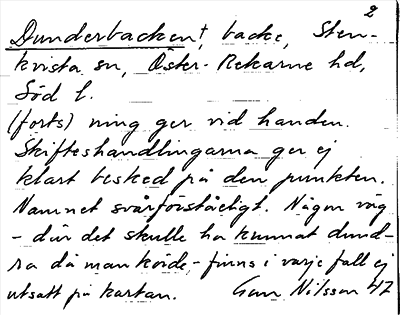 2
Dunderbacken†, backe, Sten-
kvista sn, Öster-Rekarne hd,
Söd l.
(forts) ning ger vid handen.
Skifteshandlingarna ger ej
klart besked på den punkten.
Namnet svårförståeligt. Någon väg
- där det skulle ha kunnat dund-
ra då man körde - finns i varje fall ej
utsatt på kartan. Gun Nilsson 47